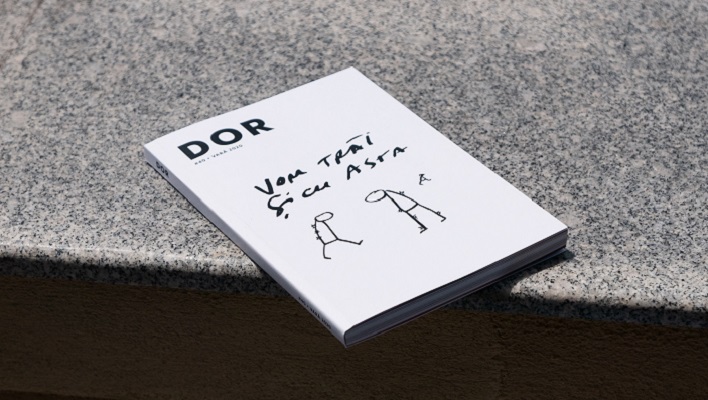 DOR
#40 • VARĂ 2020
VOM TRĂI
ȘI CU ASTA
DOR